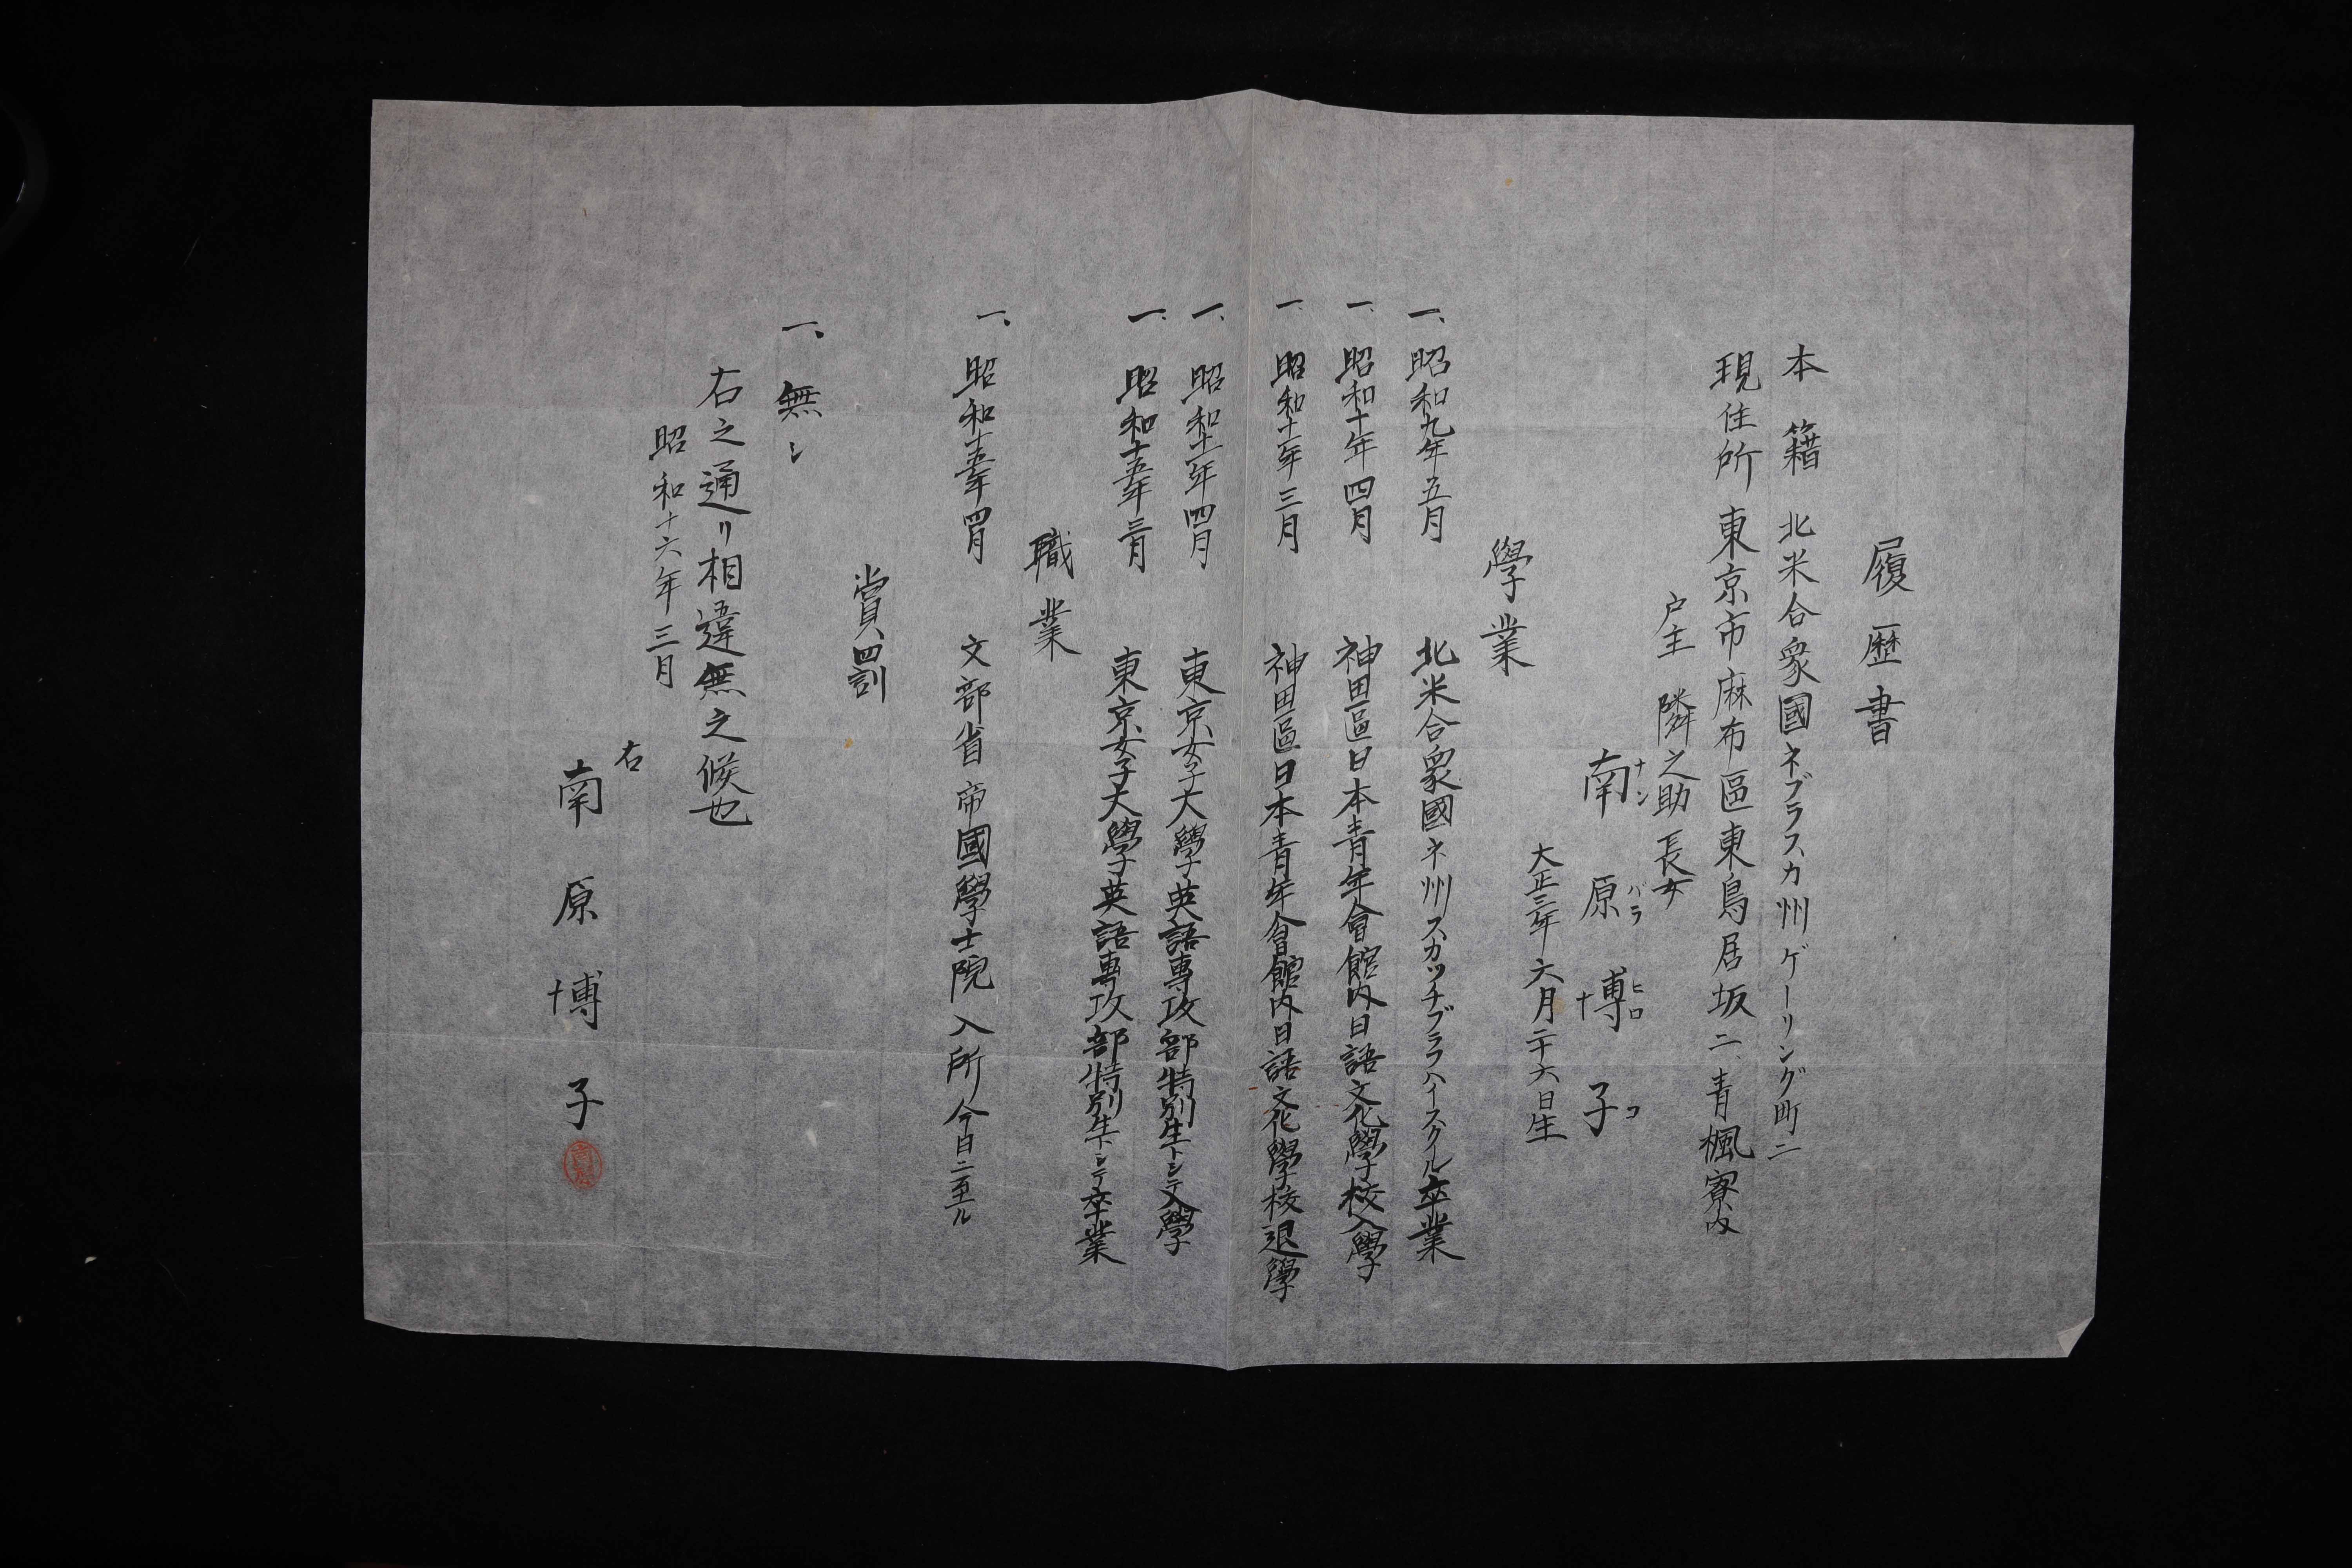 履歴書
本籍 北米合衆國ネブラスカ州ゲーリング町二
現住所 東京市麻布區東鳥居坂二、青楓寮内
戸主 隣之助 長女
南原博子
ナンバラヒロコ
大正三年六月二十六日生
學業
一、昭和九年五月 北米合衆國ネ州スカッチブラフハイスクル卒業
一、昭和十年四月 神田區日本青年會館内日語文化學校入學
一、昭和十一年三月 神田區日本青年會館内日語文化學校退學
一、昭和十一年四月 東京女子大學英語專攻部特別生トシテ入學
一、昭和十五年三月 東京女子大學英語專攻部特別生トシテ卒業
職業
一、昭和十五年四月 文部省帝國學士院入所今日ニ至ル
賞罰
一、無シ
右之通リ相違無之候也
昭和十六年三月
右
南原博子